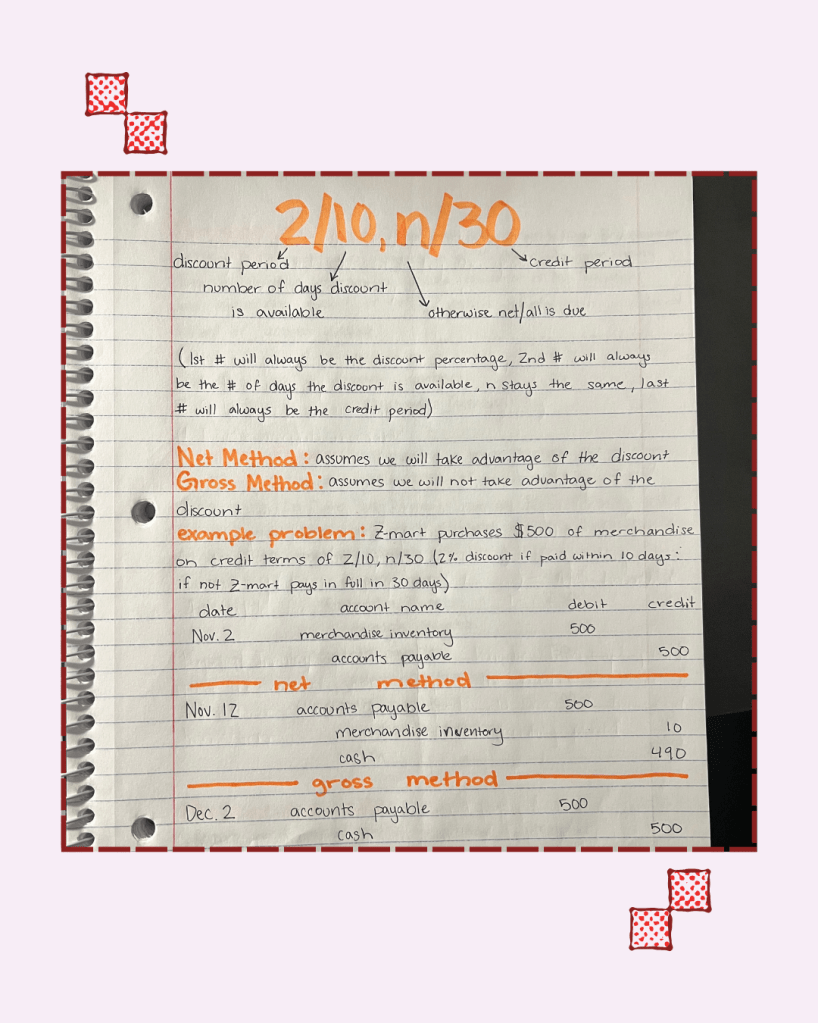 2/10, n/30
discount period credit period
number of days discount
is available otherwise net/all is due
(1st # will always be the discount percentage, 2nd # will always
be the # of days the discount is available, n stays the same, last
# will always be the credit period)
Net Method: assumes we will take advantage of the discount
Gross Method: assumes we will not take advantage of the
discount
example problem: Z-mart purchases $500 of merchandise
on credit terms of 2/10, n/30 (2% discount if paid within 10 days:
if not Z-mart pays in full in 30 days)
date account name debit credit
Nov. 2 merchandise inventory 500
accounts payable 500
net method
Nov. 12 accounts payable 500
merchandise inventory 10
cash 490
gross method
Dec. 2 accounts payable 500
cash 500